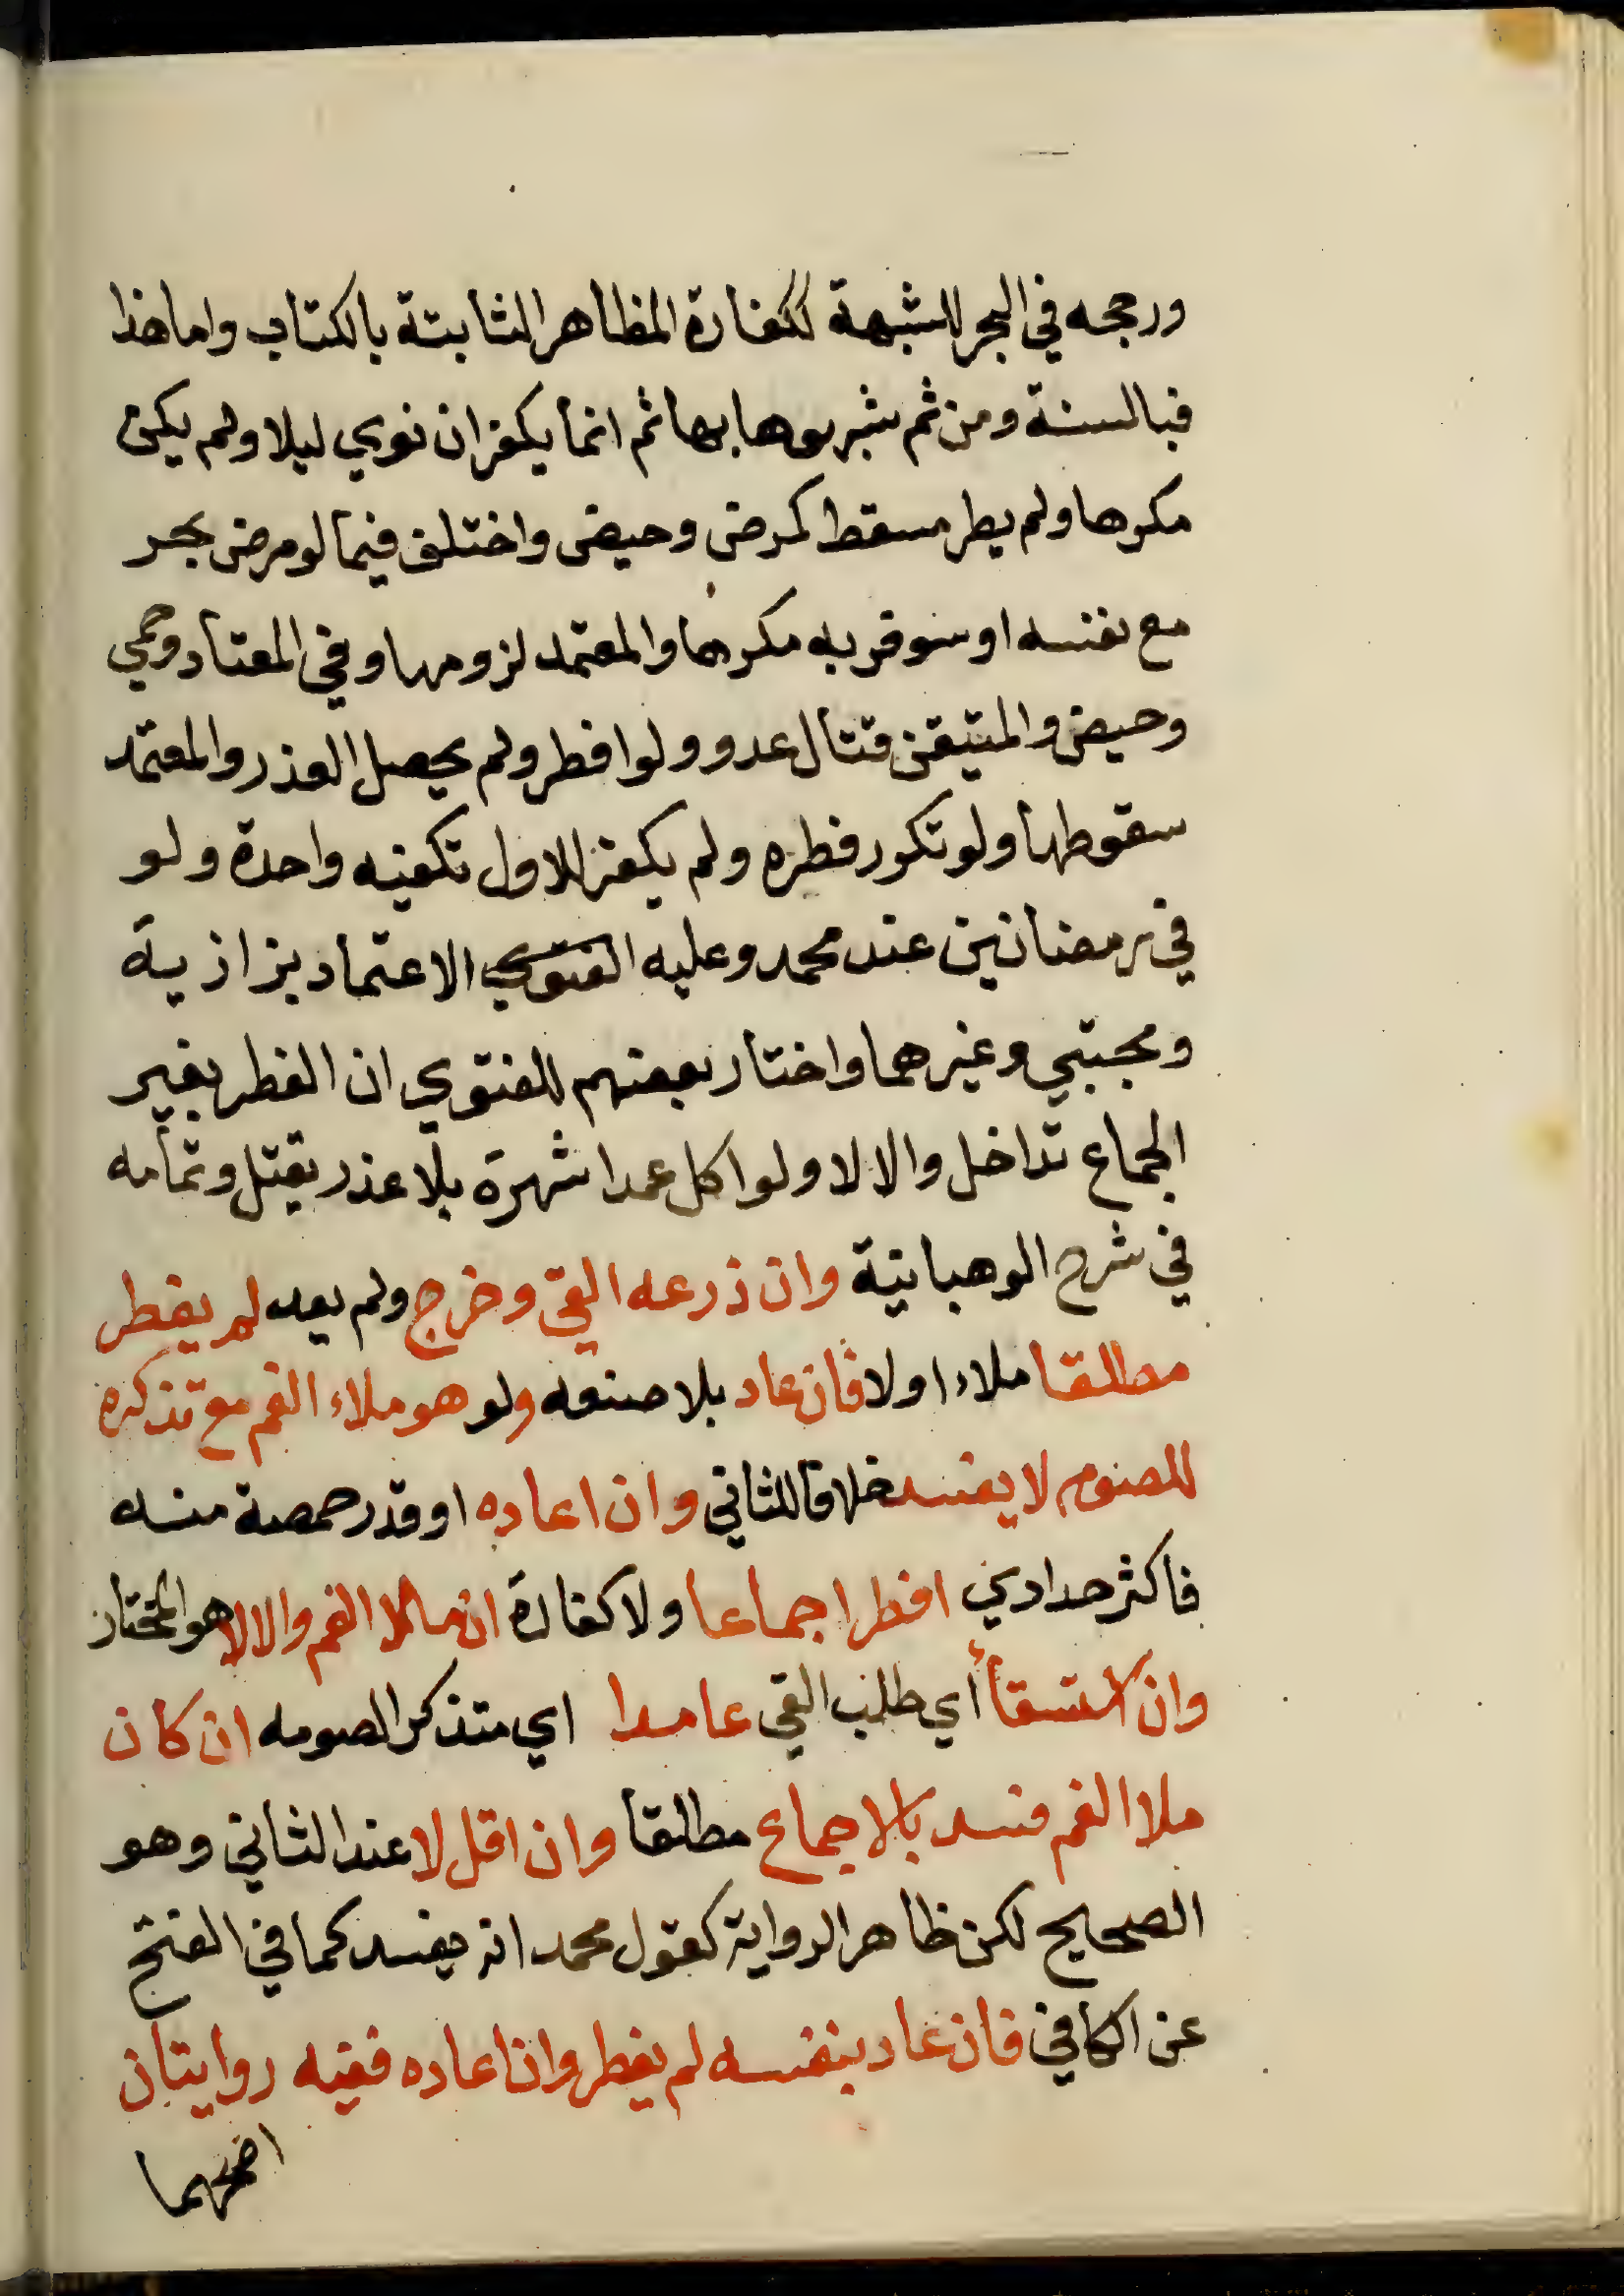 ورجحه في البحر للشبهة ككفارة المظاهر الثابتة بالكتاب واما هذا
فبالسنة ومن ثم شبهوها بها ثم انما يكفر ان نوي ليلا ولم يكن
مكرها ولم يطر مسقط كمرض وحيض واختلف فيما لو مرض بجر
مع نفسه او سوفر به مكرها والمعتمد لزومها وفي المعتاد وحمي
وحيض والمتيقن قتال عدو ولو افطر ولم يحصل العذر والمعتمد
سقوطها ولو تكرر فطره ولم يكفر للاول تكفيه واحدة ولو
في رمضانين عند محمد وعليه الفتوي الاعتماد بزازية
ومجتبي وغيرهما واختار بعضهم للفتوي ان الفطر بغير
الجماع تداخل والا لا ولو اكل عمدا شهرة بلا عذر يقتل وتمامه
في شرح الوهبانية وان ذرعه القي وخرج ولم يعد لم يفطر
مطلقا ملاء او لا فان عاد بلا صنعه ولو هو ملاء الفم مع تذكره
للصوم لا يفسد خلافا للثاني وان اعاده او قدر حمصة منه
فاكثر حدادي افطر اجماعا ولا كفارة ان ملا الفم والا لا هو المختار
وان استقأ أي طلب القي عامدا اي متذكرا لصومه ان كان
ملا الفم فسد بالاجماع مطلقا وان اقل لا عند الثاني وهو
الصحيح لكن ظاهر الرواية كقول محمد انه يفسد كما في الفتح
عن الكافي فان عاد بنفسه لم يفطر وان اعاده ففيه روايتان
اصحهما